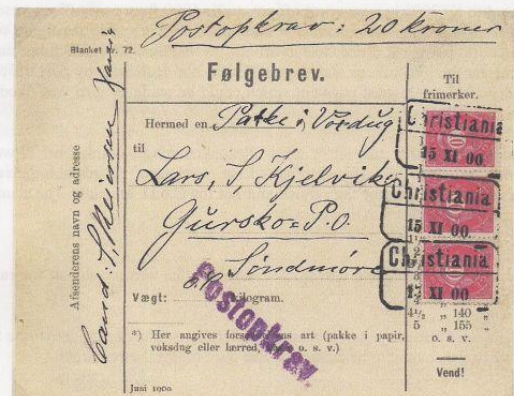 Postopkrav: 20 kroner
Blanket Nr. 72.
Følgebrev.
Til
frimerker.
Afsenderens navn og adresse
Cand: S,
Hermed en Pakke i Voxdug
til
Lars, S, Kjelvike
Gursko=P.O.
Söndmöre
Christiania
15 XI 00
Christiania
15 XI 00
Christiania
15 XI 00
Vægt: kilogram.
Postopkrav.
*) Her angives forsendelsens art (pakke i papir,
voksdug eller lærred, o. s. v.)
4½ " 140 "
5 " 155 "
o. s. v.
Vend!
Juni 1900